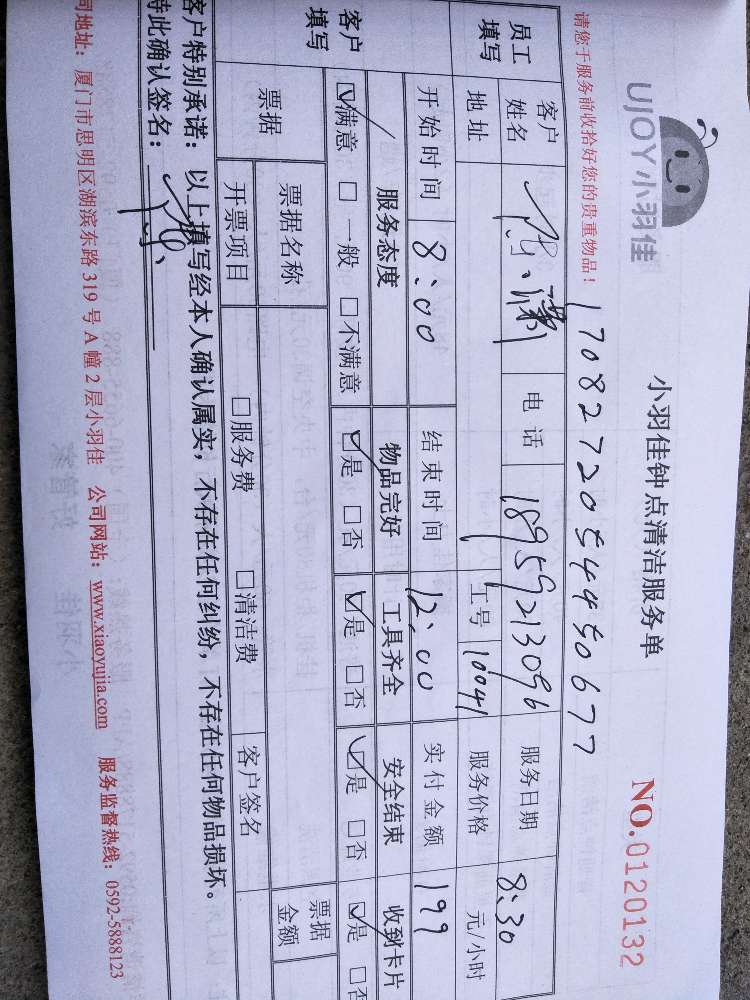 UJOY小羽佳
小羽佳钟点清洁服务单
NO.0120132
请您于服务前收拾好您的贵重物品！
17082720544450677
员工填写
客户姓名
电话 18959213096
服务日期 8:30
地址
工号 10041
服务价格 元/小时
开始时间 8:00
结束时间 12:00
实付金额 199
客户填写
服务态度 物品完好 工具齐全 安全结束 收到卡片
☑满意 □一般 □不满意 ☑是 □否 ☑是 □否 ☑是 □否 ☑是 □否
票据
票据名称
票据金额
开票项目 □服务费 □清洁费 客户签名
客户特别承诺：以上填写经本人确认属实，不存在任何纠纷，不存在任何物品损坏。
特此确认签名：
司地址：厦门市思明区湖滨东路319号A幢2层小羽佳 公司网站：www.xiaoyujia.com 服务监督热线：0592-5888123